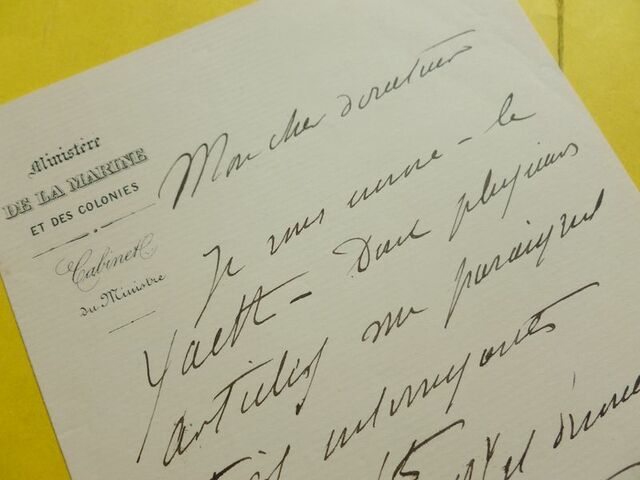 Ministère
DE LA MARINE
ET DES COLONIES
Cabinet
du Ministre
Mon cher directeur
Je vous envoie - le
Yacht - Dont plusieurs
articles me paraissent
intéressants